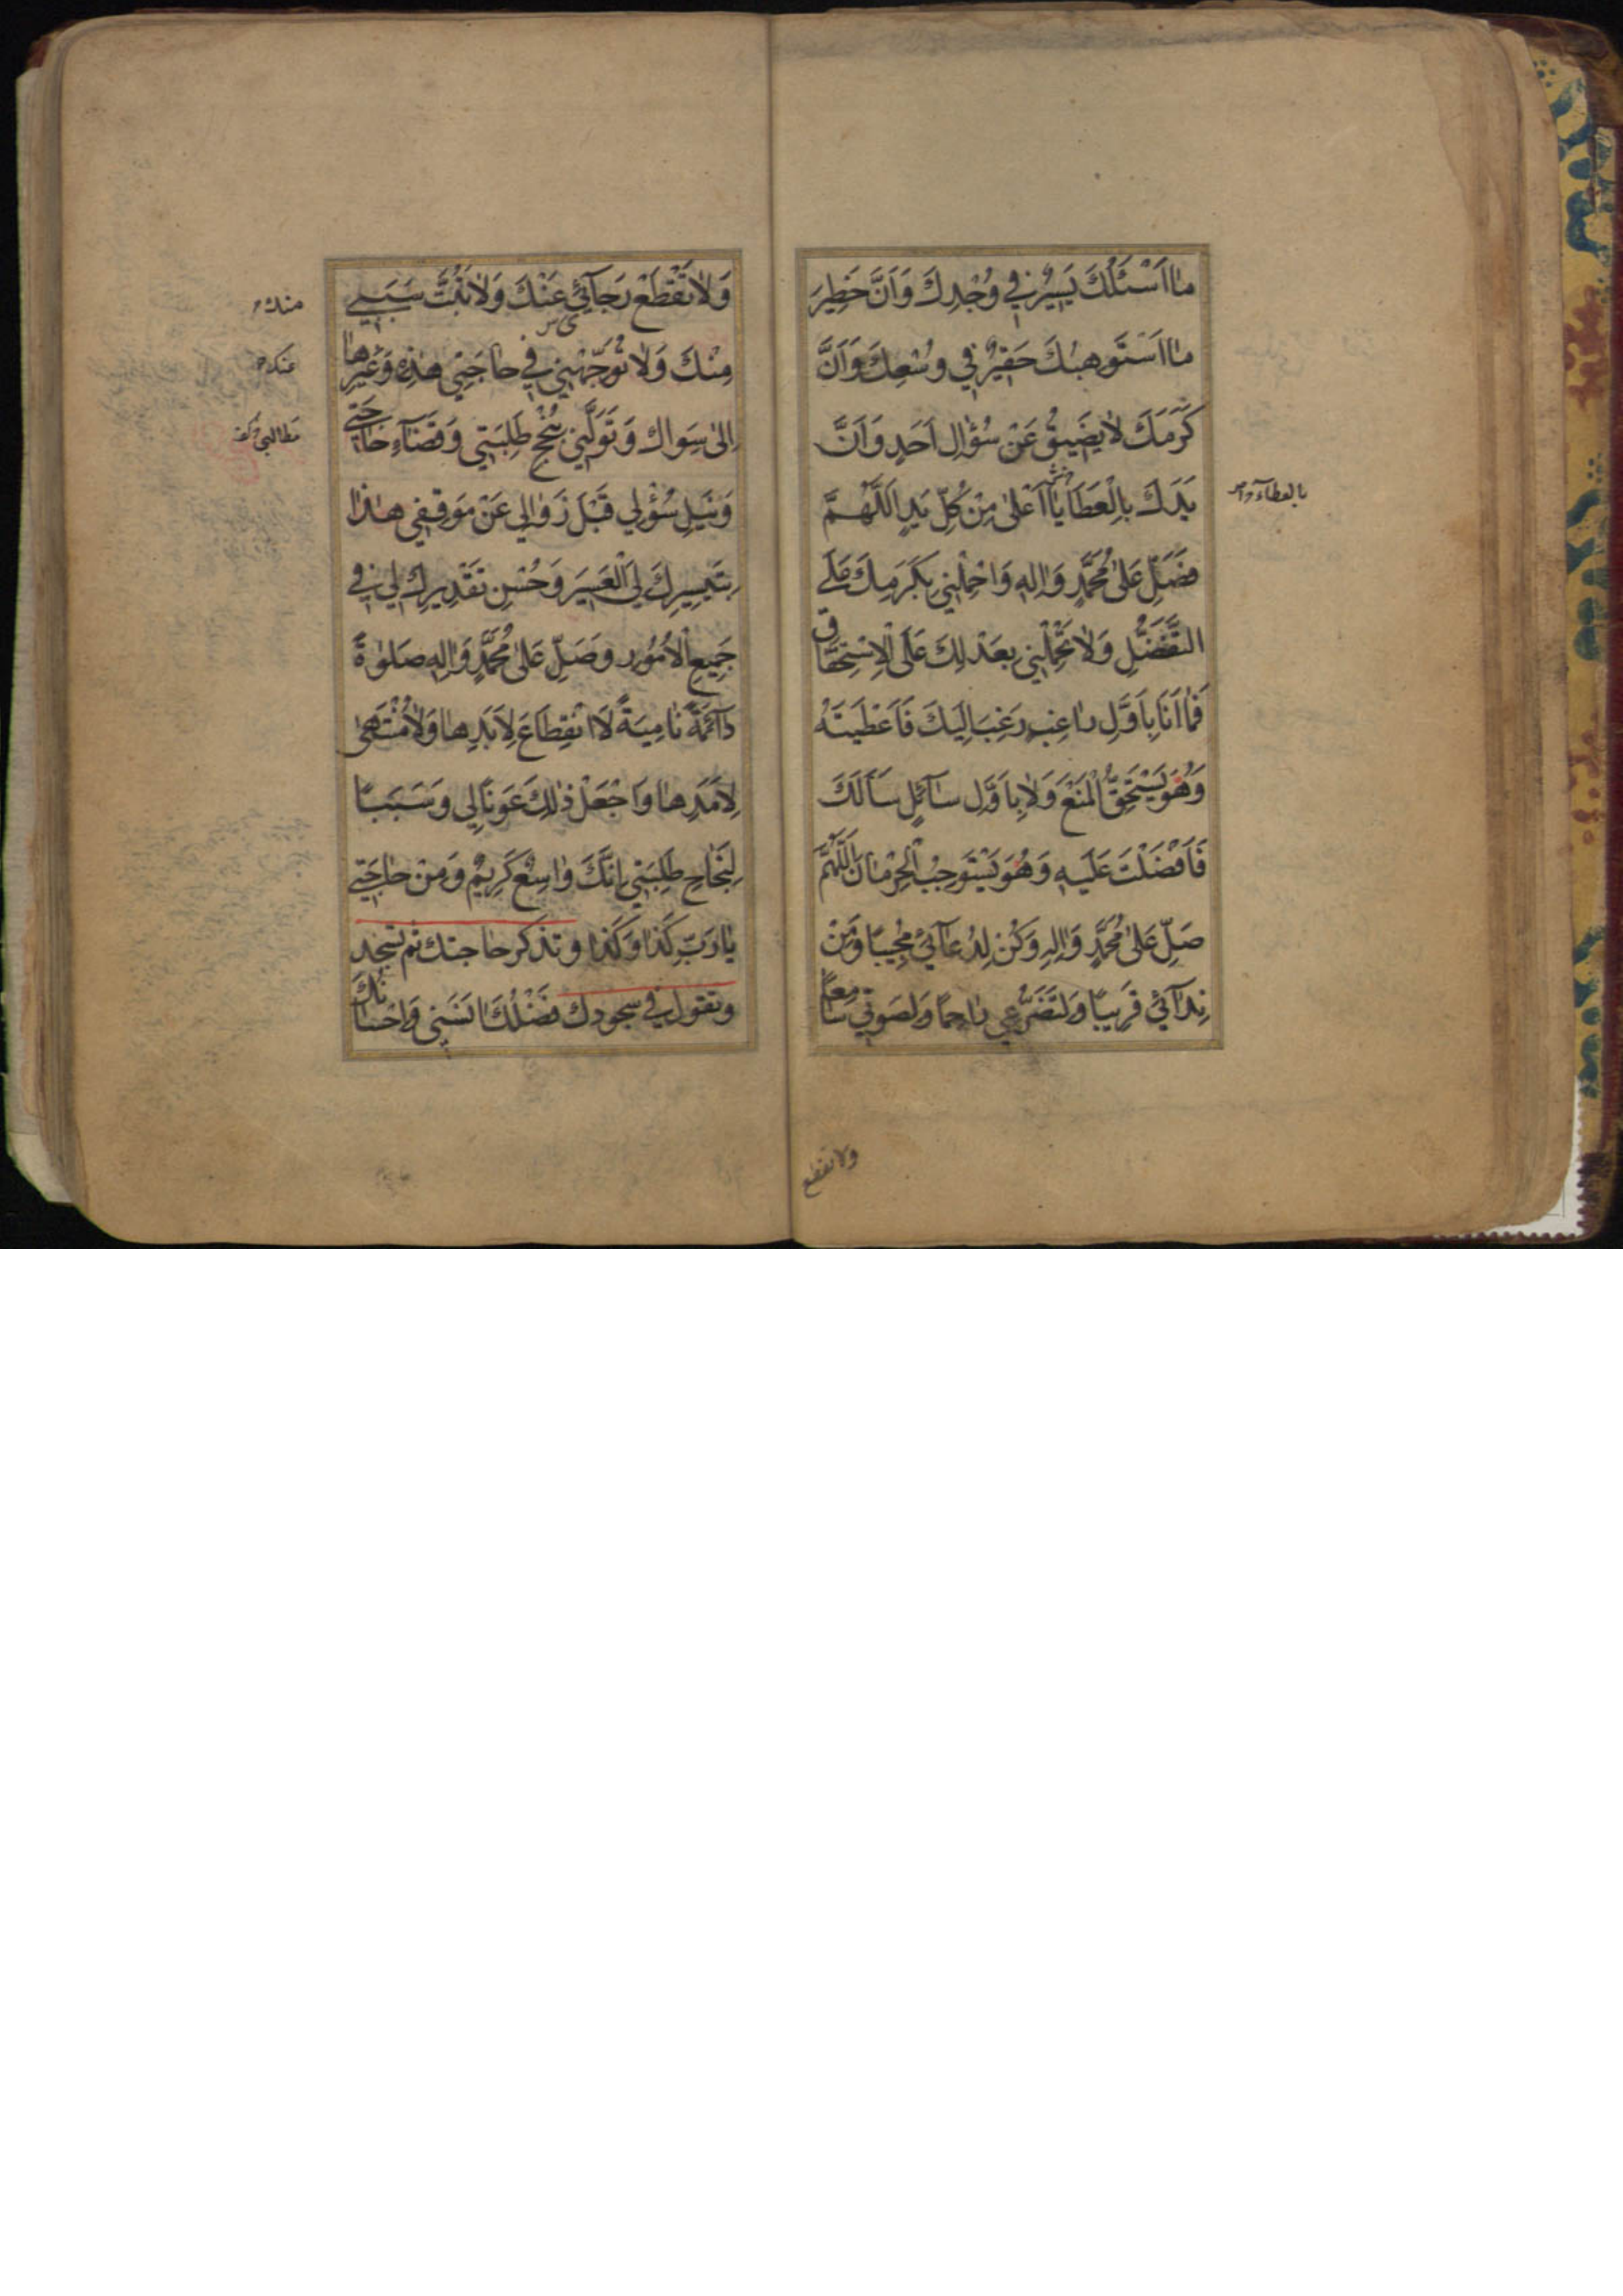 مٰا اَسْئَلُكَ يَسِيْرٌ فِي وُجْدِكَ وَاَنَّ خَطِيرَ
مٰا اَسْتَوهِبُكَ حَقِيْرٌ فِي وُسْعِكَ وَاَنَّ
كَرَمَكَ لاٰ يَضِيقُ عَنْ سُؤٰالِ اَحَدٍ وَاَنَّ
يَدَكَ بِالْعَطَايٰا اَعْلىٰ مِنْ كُلِّ يَدٍ اَللّٰهُمَّ
بالعطاء
فَصَلِّ عَلىٰ مُحَمَّدٍ وَاٰلِهِ وَاحْمِلْنِي بِكَرَمِكَ عَلَى
التَّفَضُّلِ وَلاٰ تَحْمِلْنِي بِعَدْلِكَ عَلَى الْاِسْتِحْقٰاقِ
فَمٰا اَنَا بِاَوَّلِ رٰاغِبٍ رَغِبَ اِلَيْكَ فَاَعْطَيْتَهُ
وَهُوَ يَسْتَحِقُّ الْمَنْعَ وَلاٰ بِاَوَّلِ سٰآئِلٍ سَاَلَكَ
فَاَفْضَلْتَ عَلَيْهِ وَهُوَ يَسْتَوجِبُ الْحِرْمٰانَ اَللّٰهُمَّ
صَلِّ عَلىٰ مُحَمَّدٍ وَاٰلِهِ وَكُنْ لِدُعٰآئِي مُجِيبًا وَمِنْ
نِدٰآئِي قَرِيبًا وَلِتَضَرُّعِي رٰاحِمًا وَلِصَوْتِي سٰامِعًا
ولا تقطع
وَلاٰ تَقْطَعْ رَجٰآئِي عَنْكَ وَلاٰ تَبُتَّ سَبَبِي
منك
مِنْكَ وَلاٰ تُوَجِّهْنِي فِي حٰاجَتِي هٰذِهِ وَغَيْرِهٰا
عنك
اِلىٰ سِوٰاكَ وَتَوَلَّنِي بِنُجْحِ طَلِبَتِي وَقَضٰآءِ حٰاجَتِي
مطالبي
وَنَيْلِ سُؤْلِي قَبْلَ زَوٰالِي عَنْ مَوقِفِي هٰذٰا
بِتَيْسِيرِكَ لِيَ الْعَسِيرَ وَحُسْنِ تَقْدِيرِكَ لِي فِي
جَمِيعِ الْاُمُورِ وَصَلِّ عَلىٰ مُحَمَّدٍ وَاٰلِهِ صَلوٰةً
دٰآئِمَةً نٰامِيَةً لاَ انْقِطٰاعَ لِاَبَدِهٰا وَلاٰ مُنْتَهىٰ
لِاَمَدِهٰا وَاجْعَلْ ذٰلِكَ عَونًا لِي وَسَبَبًا
لِنَجٰاحِ طَلِبَتِي اِنَّكَ وٰاسِعٌ كَرِيمٌ وَمِنْ حٰاجَتِي
يٰا رَبِّ كَذٰا وَكَذٰا وتذكر حاجتك ثم تسجد
وتقول في سجودك فَضْلُكَ اٰنَسَنِي وَاِحْسٰانُكَ